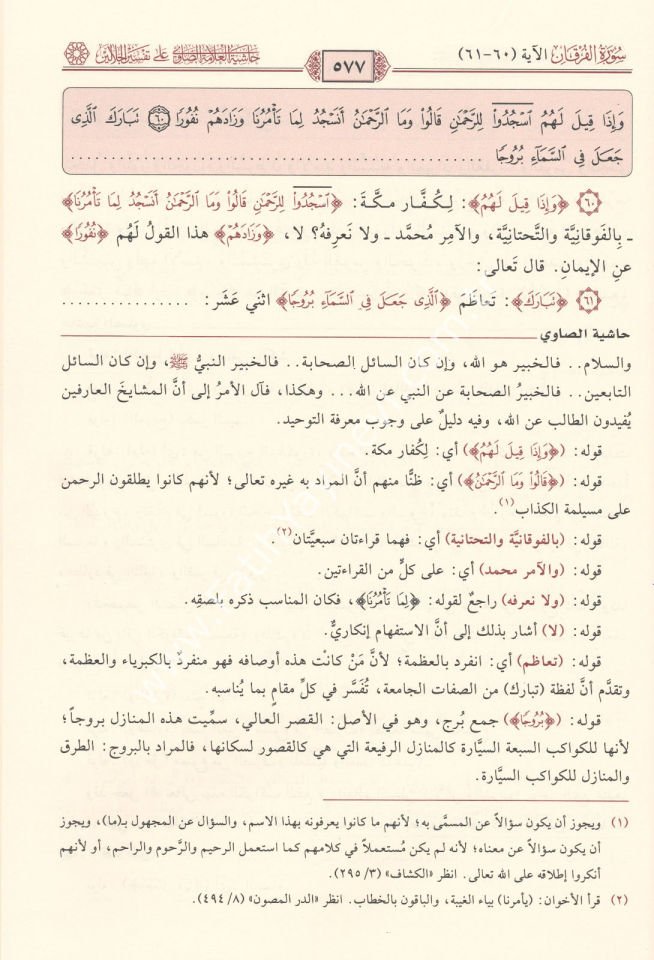 سُورَةُ الفُرْقَانِ الآية (٦٠-٦١)
٥٧٧
حَاشِيَةُ العَلَّامَةِ الصَّاوِي عَلَى تَفْسِيرِ الجَلَالَيْنِ
وَإِذَا قِيلَ لَهُمُ اسْجُدُوا لِلرَّحْمَٰنِ قَالُوا وَمَا الرَّحْمَٰنُ أَنَسْجُدُ لِمَا تَأْمُرُنَا وَزَادَهُمْ نُفُورًا ﴿٦٠﴾ تَبَارَكَ الَّذِى
جَعَلَ فِى السَّمَآءِ بُرُوجًا ............
﴿٦٠﴾ ﴿وَإِذَا قِيلَ لَهُمُ﴾: لِكُفَّارِ مكَّةَ: ﴿اسْجُدُوا لِلرَّحْمَٰنِ قَالُوا وَمَا الرَّحْمَٰنُ أَنَسْجُدُ لِمَا تَأْمُرُنَا﴾
ـ بِالفَوقانِيَّة والتَّحتانِيَّة، والآمِر مُحمَّد ـ ولا نَعرِفهُ؟ لا، ﴿وَزَادَهُمْ﴾ هذا القولُ لَهُم ﴿نُفُورًا﴾
عنِ الإيمانِ. قال تَعالى:
﴿٦١﴾ ﴿تَبَارَكَ﴾: تَعاظَمَ ﴿الَّذِى جَعَلَ فِى السَّمَآءِ بُرُوجًا﴾ اثنَي عَشَرَ: ............
حاشية الصاوي
والسلام.. فالخبير هو الله، وإن كان السائل الصحابة.. فالخبير النبيُّ ﷺ، وإن كان السائل
التابعين.. فالخبيرُ الصحابة عن النبي عن الله... وهكذا، فآل الأمرُ إلى أنَّ المشايخَ العارفين
يُفيدون الطالب عن الله، وفيه دليلٌ على وجوب معرفة التوحيد.
قوله: (﴿وَإِذَا قِيلَ لَهُمُ﴾) أي: لِكُفار مكة.
قوله: (﴿قَالُوا وَمَا الرَّحْمَٰنُ﴾) أي: ظنًّا منهم أنَّ المراد به غيره تعالى؛ لأنهم كانوا يطلقون الرحمن
على مسيلمة الكذاب(١).
قوله: (بالفوقانيَّة والتحتانية) أي: فهما قراءتان سبعيَّتان(٢).
قوله: (والآمر محمد) أي: على كلٍّ من القراءتين.
قوله: (ولا نعرفه) راجعٌ لقوله: ﴿لِمَا تَأْمُرُنَا﴾، فكان المناسب ذكره بلصقِه.
قوله: (لا) أشار بذلك إلى أنَّ الاستفهام إنكاريٌّ.
قوله: (تعاظم) أي: انفرد بالعظمة؛ لأنَّ مَنْ كانَتْ هذه أوصافه فهو منفردٌ بالكبرياء والعظمة،
وتقدَّم أنَّ لفظة (تبارك) من الصفات الجامعة، تُفَسَّر في كلِّ مقامٍ بما يُناسبه.
قوله: (﴿بُرُوجًا﴾) جمع بُرج، وهو في الأصل: القصر العالي، سمِّيت هذه المنازل بروجاً؛
لأنها للكواكب السبعة السيَّارة كالمنازل الرفيعة التي هي كالقصور لسكانها، فالمراد بالبروج: الطرق
والمنازل للكواكب السيَّارة.
(١) ويجوز أن يكون سؤالاً عن المسمَّى به؛ لأنهم ما كانوا يعرفونه بهذا الاسم، والسؤال عن المجهول بـ(ما)، ويجوز
أن يكون سؤالاً عن معناه؛ لأنه لم يكن مُستعملاً في كلامهم كما استعمل الرحيم والرَّحوم والراحم، أو لأنهم
أنكروا إطلاقه على الله تعالى. انظر «الكشاف» (٣/ ٢٩٥).
(٢) قرأ الأخوان: (يأمرنا) بياء الغيبة، والباقون بالخطاب. انظر «الدر المصون» (٨/ ٤٩٤).